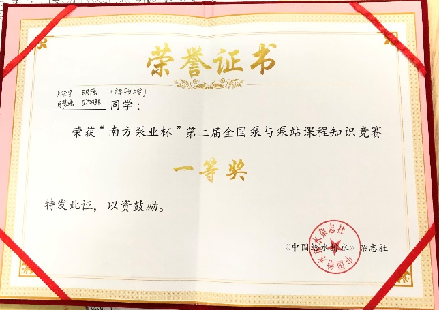 荣誉证书
同学：
荣获“南方泵业杯”第二届全国泵与泵站课程知识竞赛
一等奖
特发此证，以资鼓励。
《中国给水排水》杂志社